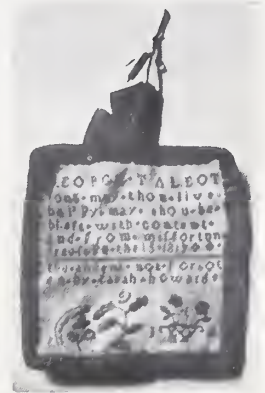 EORG T TALBOT
ong may thou live
happy may thou be
blest with content
nd from misforton

not forgot
en by sarah howard